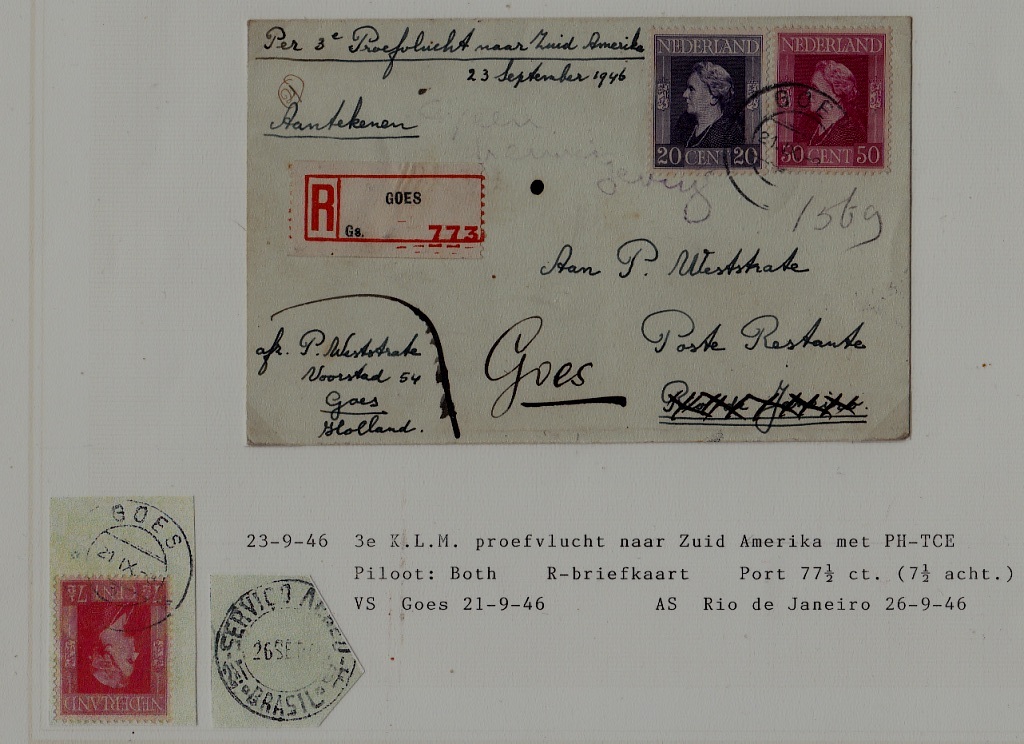 Per 3e Proefvlucht naar Zuid Amerika
23 September 1946
Aantekenen
NEDERLAND
20 CENT 20
NEDERLAND
50 CENT 50
GOES
R
GOES
Gs.
773
1569
Aan P. Weststrate
Poste Restante
Goes
afz. P. Weststrate
Voorstad 54
Goes
Holland.
GOES
21 IX
NEDERLAND
SERVIÇO AEREO
26 SET
BRASIL
23-9-46 3e K.L.M. proefvlucht naar Zuid Amerika met PH-TCE
Piloot: Both R-briefkaart Port 77½ ct. (7½ acht.)
VS Goes 21-9-46 AS Rio de Janeiro 26-9-46